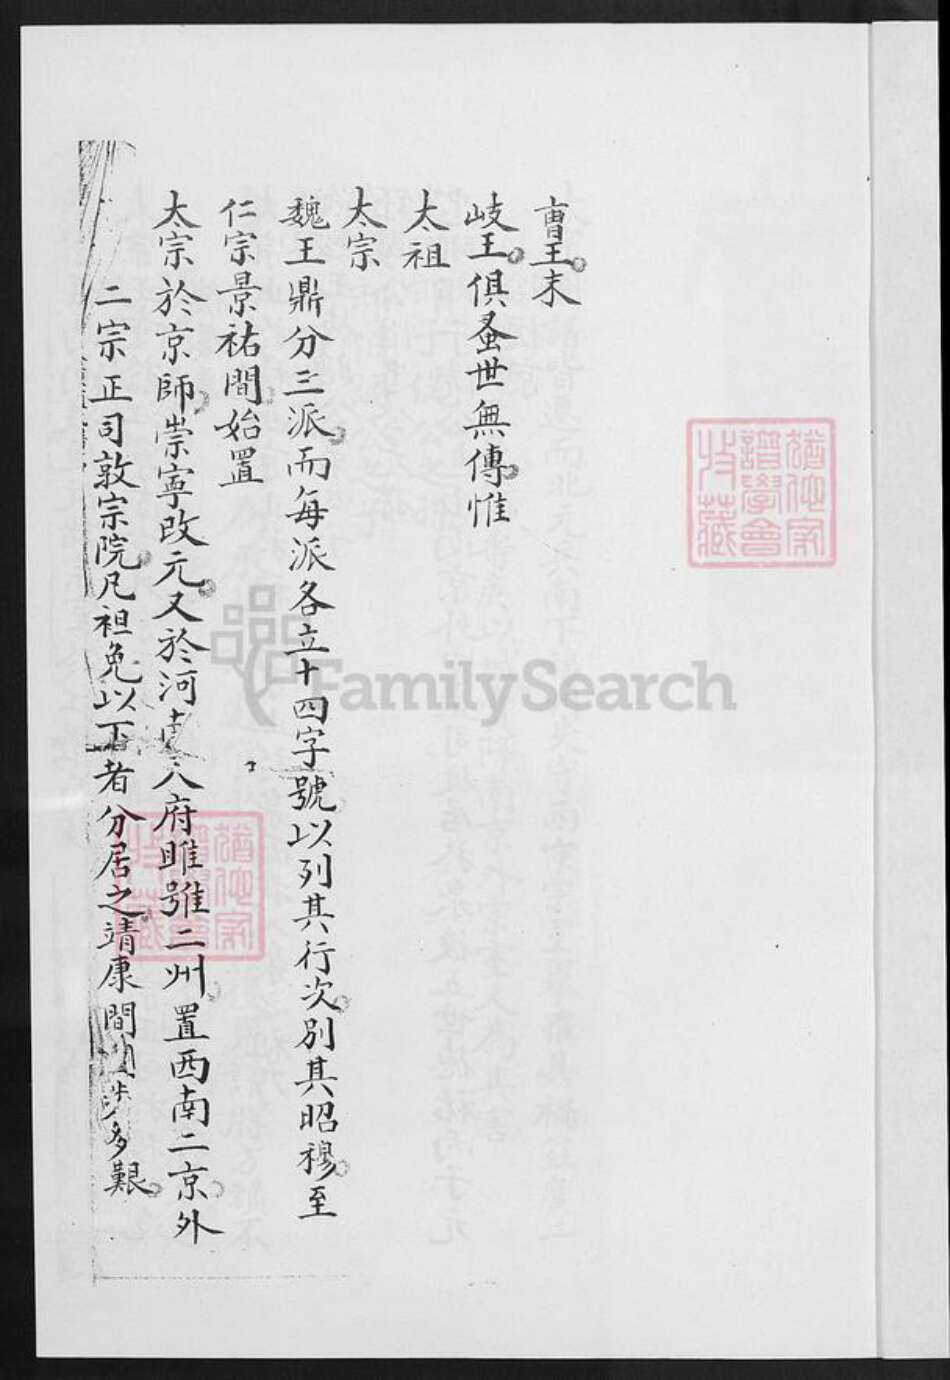 曺王末
岐王俱蚤世無傳惟
太祖
太宗
魏王鼎分三派而每派各立十四字號以列其行次別其昭穆至
仁宗景祐間始置
太宗於京師崇寧改元又於河南府睢雖二州置西南二京外
二宗正司敦宗院凡袒免以下者分居之靖康間 步多艱
FamilySearch